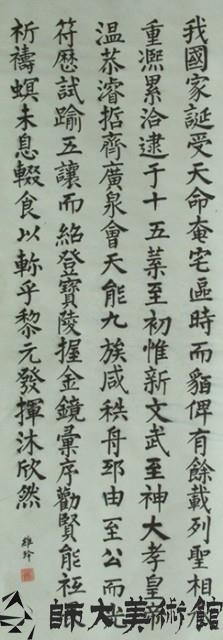 我國家誕受天命奄宅區時而貊俾有餘載列聖相
重漂累洽逮于十五葉至初惟新文武至神大孝皇帝
温恭濬哲齊廣泉會天能九族咸秩舟耶由至公而光
符歷試踰五讓而紹登寶陵握金鏡彙序勸賢能祗
祈禱螟未息輟食以軫乎黎元發揮沐欣然
雅玲
師大美術館